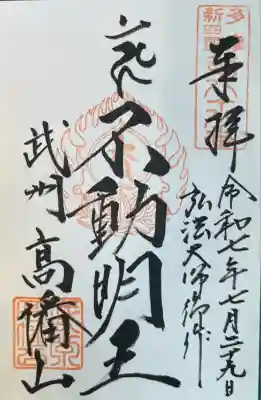 奉拝
令和七年七月二十九日
弘法大師御作
不動明王
武州 高幡山